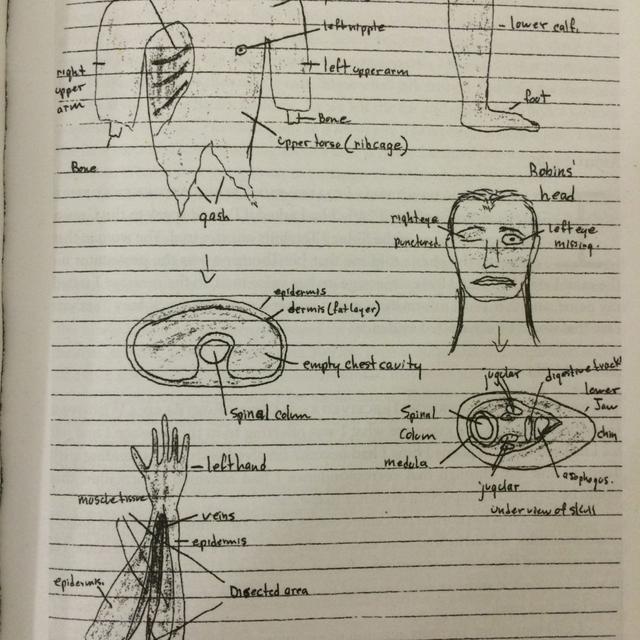 left nipple
lower calf.
right
upper
arm
left upper arm
foot
Bone
upper torso (ribcage)
Bone
Robins'
head
gash
right eye
punctured.
left eye
missing.
epidermis
dermis (fat layer)
empty chest cavity
jugular
digestive track
lower
Jaw
Spinal colum
Spinal
Colum
chin
left hand
medula
asophogus.
muscle tissue
jugular
veins
under view of skull
epidermis
epidermis.
Disected area